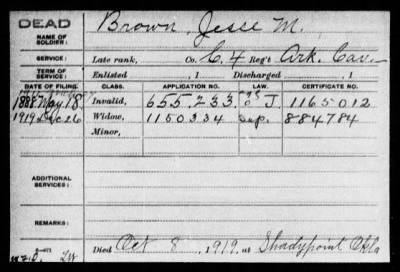 DEAD
NAME OF SOLDIER:
Brown, Jesse M.
SERVICE:
Late rank, Co. C, 4 Reg't Ark. Cav.
TERM OF SERVICE:
Enlisted , 1 Discharged , 1
DATE OF FILING. CLASS. APPLICATION NO. LAW. CERTIFICATE NO.
1888 May 18 Invalid, 655.233 J 1165012
1919 Dec 26 Widow, 1150334 Sep. 884784
Minor,
ADDITIONAL SERVICES:
REMARKS:
Died Oct 8, 1919, at Shadypoint Okla